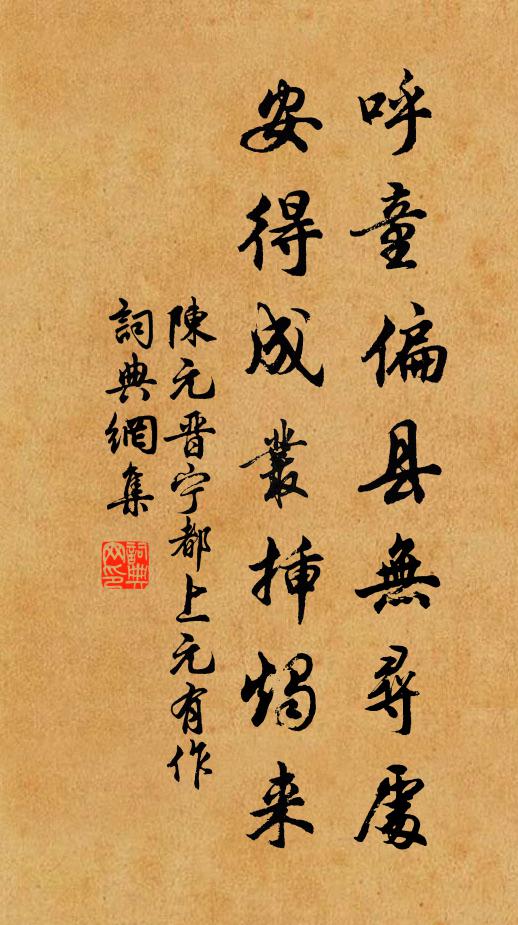 呼童偏县無尋處
安得成叢挿燭来
陳元晋宁都上元有作
詞典網集
詞典網印